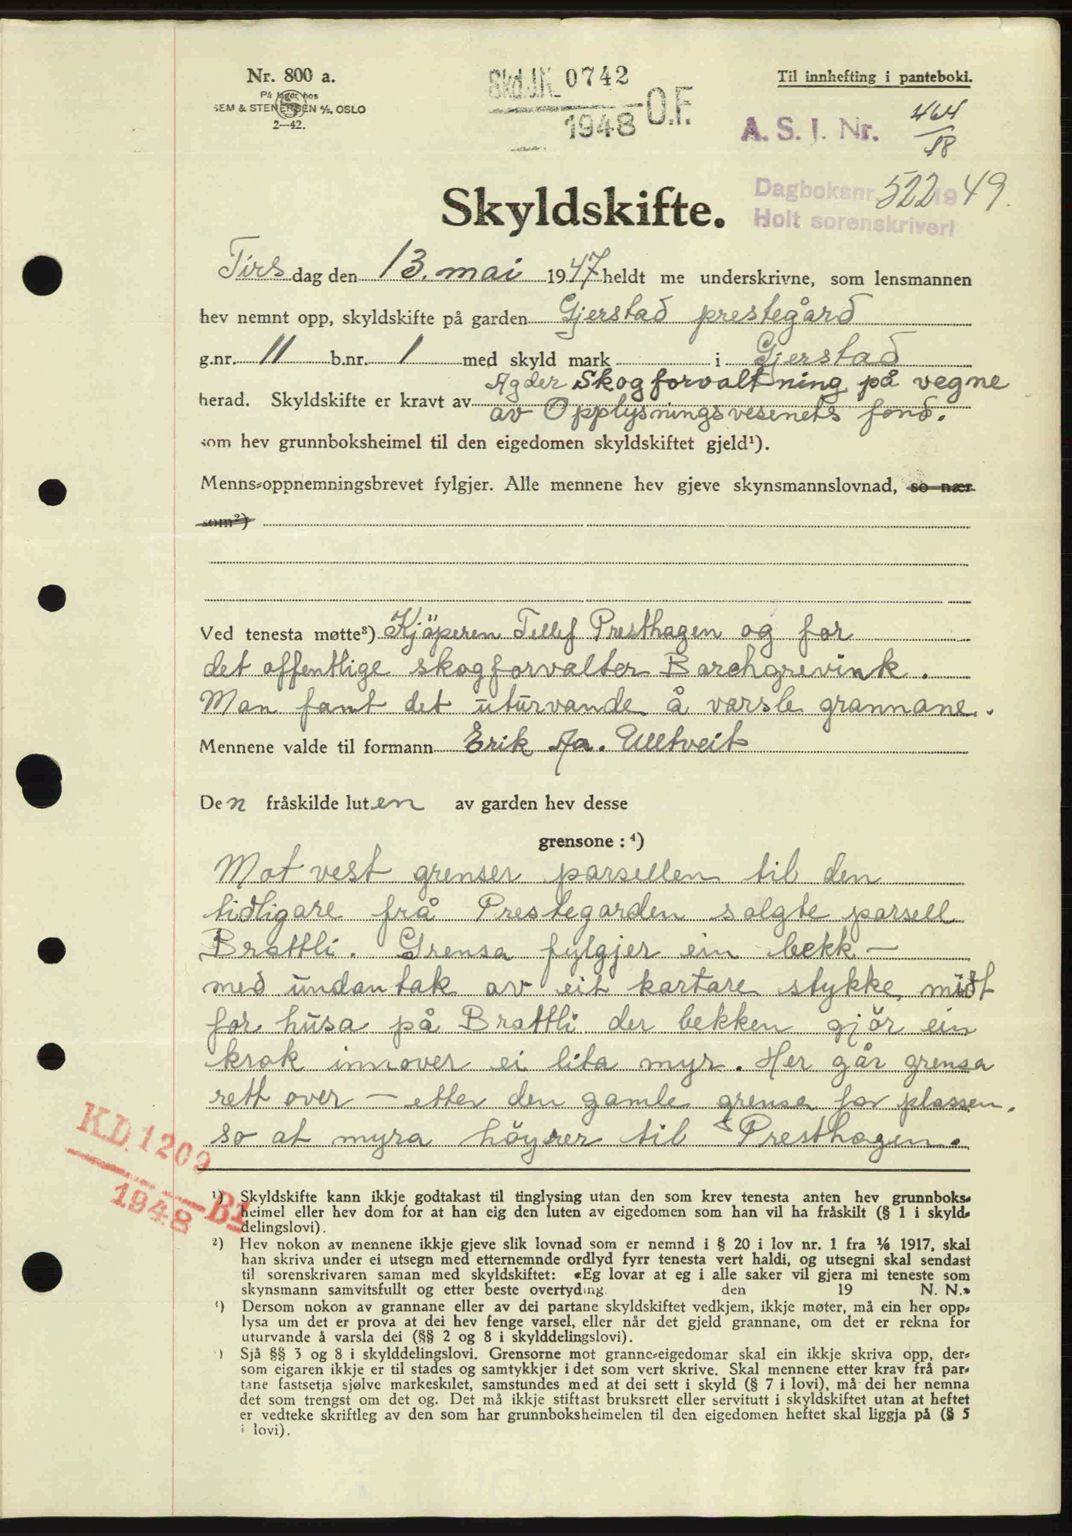 Nr. 800 a.
På lager hos
SEM & STENERSEN A/S, OSLO
2—42.
Skd.J.N. 0742
1948 O.F.
Til innhefting i panteboki.
A. S. J. Nr. 464
18
Dagboksnr. 522 19 49.
Holt sorenskriveri
Skyldskifte.
Tirs dag den 13. mai 1947 heldt me underskrivne, som lensmannen
hev nemnt opp, skyldskifte på garden Gjerstad prestegård
g.nr. 11 b.nr. 1 med skyld mark i Gjerstad
Agder Skogforvaltning på vegne
herad. Skyldskifte er kravt av av Opplysningsvesenets fond.
som hev grunnboksheimel til den eigedomen skyldskiftet gjeld¹).
Menns-oppnemningsbrevet fylgjer. Alle mennene hev gjeve skynsmannslovnad, so nær
som²)
Ved tenesta møtte³) Kjöperen Tellef Presthagen og for
det offentlige skogforvalter Barchgrevink.
Man fant det uturvande å varsle grannane.
Mennene valde til formann Erik Aa. Ulltveit
Den fråskilde luten av garden hev desse
grensone : ⁴)
Mot vest grenser parsellen til den
tidligare frå Prestegarden solgte parsell
Brattli. Grensa fylgjer ein bekk —
med undantak av eit kortare stykke midt
for husa på Brattli der bekken gjör ein
krok innover ei lita myr. Her går grensa
rett over — etter den gamle grensa for plassen.
so at myra höyrer til Presthagen.
KD. 1209
1948 B1
¹) Skyldskifte kann ikkje godtakast til tinglysing utan den som krev tenesta anten hev grunnboks-
heimel eller hev dom for at han eig den luten av eigedomen som han vil ha fråskilt (§ 1 i skyld-
delingslovi).
²) Hev nokon av mennene ikkje gjeve slik lovnad som er nemnd i § 20 i lov nr. 1 fra 1/6 1917, skal
han skriva under ei utsegn med etternemnde ordlyd fyrr tenesta vert haldi, og utsegni skal sendast
til sorenskrivaren saman med skyldskiftet: «Eg lovar at eg i alle saker vil gjera mi teneste som
skynsmann samvitsfullt og etter beste overtyding. den 19 N. N.»
³) Dersom nokon av grannane eller av dei partane skyldskiftet vedkjem, ikkje møter, må ein her opp-
lysa um det er prova at dei hev fenge varsel, eller når det gjeld grannane, om det er rekna for
uturvande å varsla dei (§§ 2 og 8 i skylddelingslovi).
⁴) Sjå §§ 3 og 8 i skylddelingslovi. Grensorne mot granne-eigedomar skal ein ikkje skriva opp, der-
som eigaren ikkje er til stades og samtykkjer i det som vert skrive. Skal mennene etter krav frå par-
tane fastsetja sjølve markeskilet, samstundes med at dei sett i skyld (§ 7 i lovi), må dei her nemna
det som trengst om det og. Det må ikkje stiftast bruksrett eller servitutt i skyldskiftet utan at heftet
er vedteke skriftleg av den som har grunnboksheimelen til den eigedomen heftet skal liggja på (§ 5
i lovi).